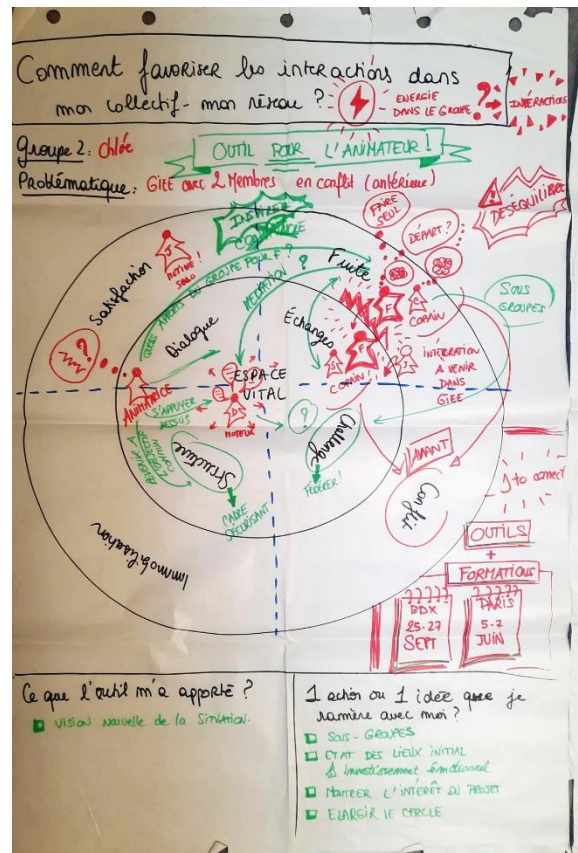 Comment favoriser les interactions dans
mon collectif - mon réseau ?
ENERGIE
DANS LE GROUPE
?
INTERACTIONS
Groupe 2 : Chloé
OUTIL POUR L'ANIMATEUR !
Problématique : GIEE avec 2 Membres en conflit (antérieur)
DESÉQUILIBRE
INSPIRER
FAIRE
SEUL
DÉPART ?
Satisfaction
MOTIVÉ !
SOLO
QUELS APPORTS DU GROUPE POUR F ?
MÉDIATION
?
Fuite
F
C
COPAIN
SOUS
GROUPES
Dialogue
Échanges
F
COPAIN
INTÉGRATION
A VENIR
DANS
GIEE
?
ANIMATRICE
ESPACE
VITAL
S'APPUYER
DESSUS
MOTEUR
?
Challenge
Structure
FÉDÉRER !
CADRE
SÉCURISANT
AVANT
Conflit
Immobilisation
to connect
OUTILS
+
FORMATIONS
BDX
25-27
SEPT
PARIS
5-7
JUIN
Ce que l'outil m'a apporté ?
VISION NOUVELLE DE LA SITUATION.
1 action ou 1 idée que je
ramène avec moi ?
SOUS-GROUPES
ETAT DES LIEUX INITIAL
investissement émotionnel
MONTRER L'INTÉRÊT DU PROJET
ELARGIR LE CERCLE